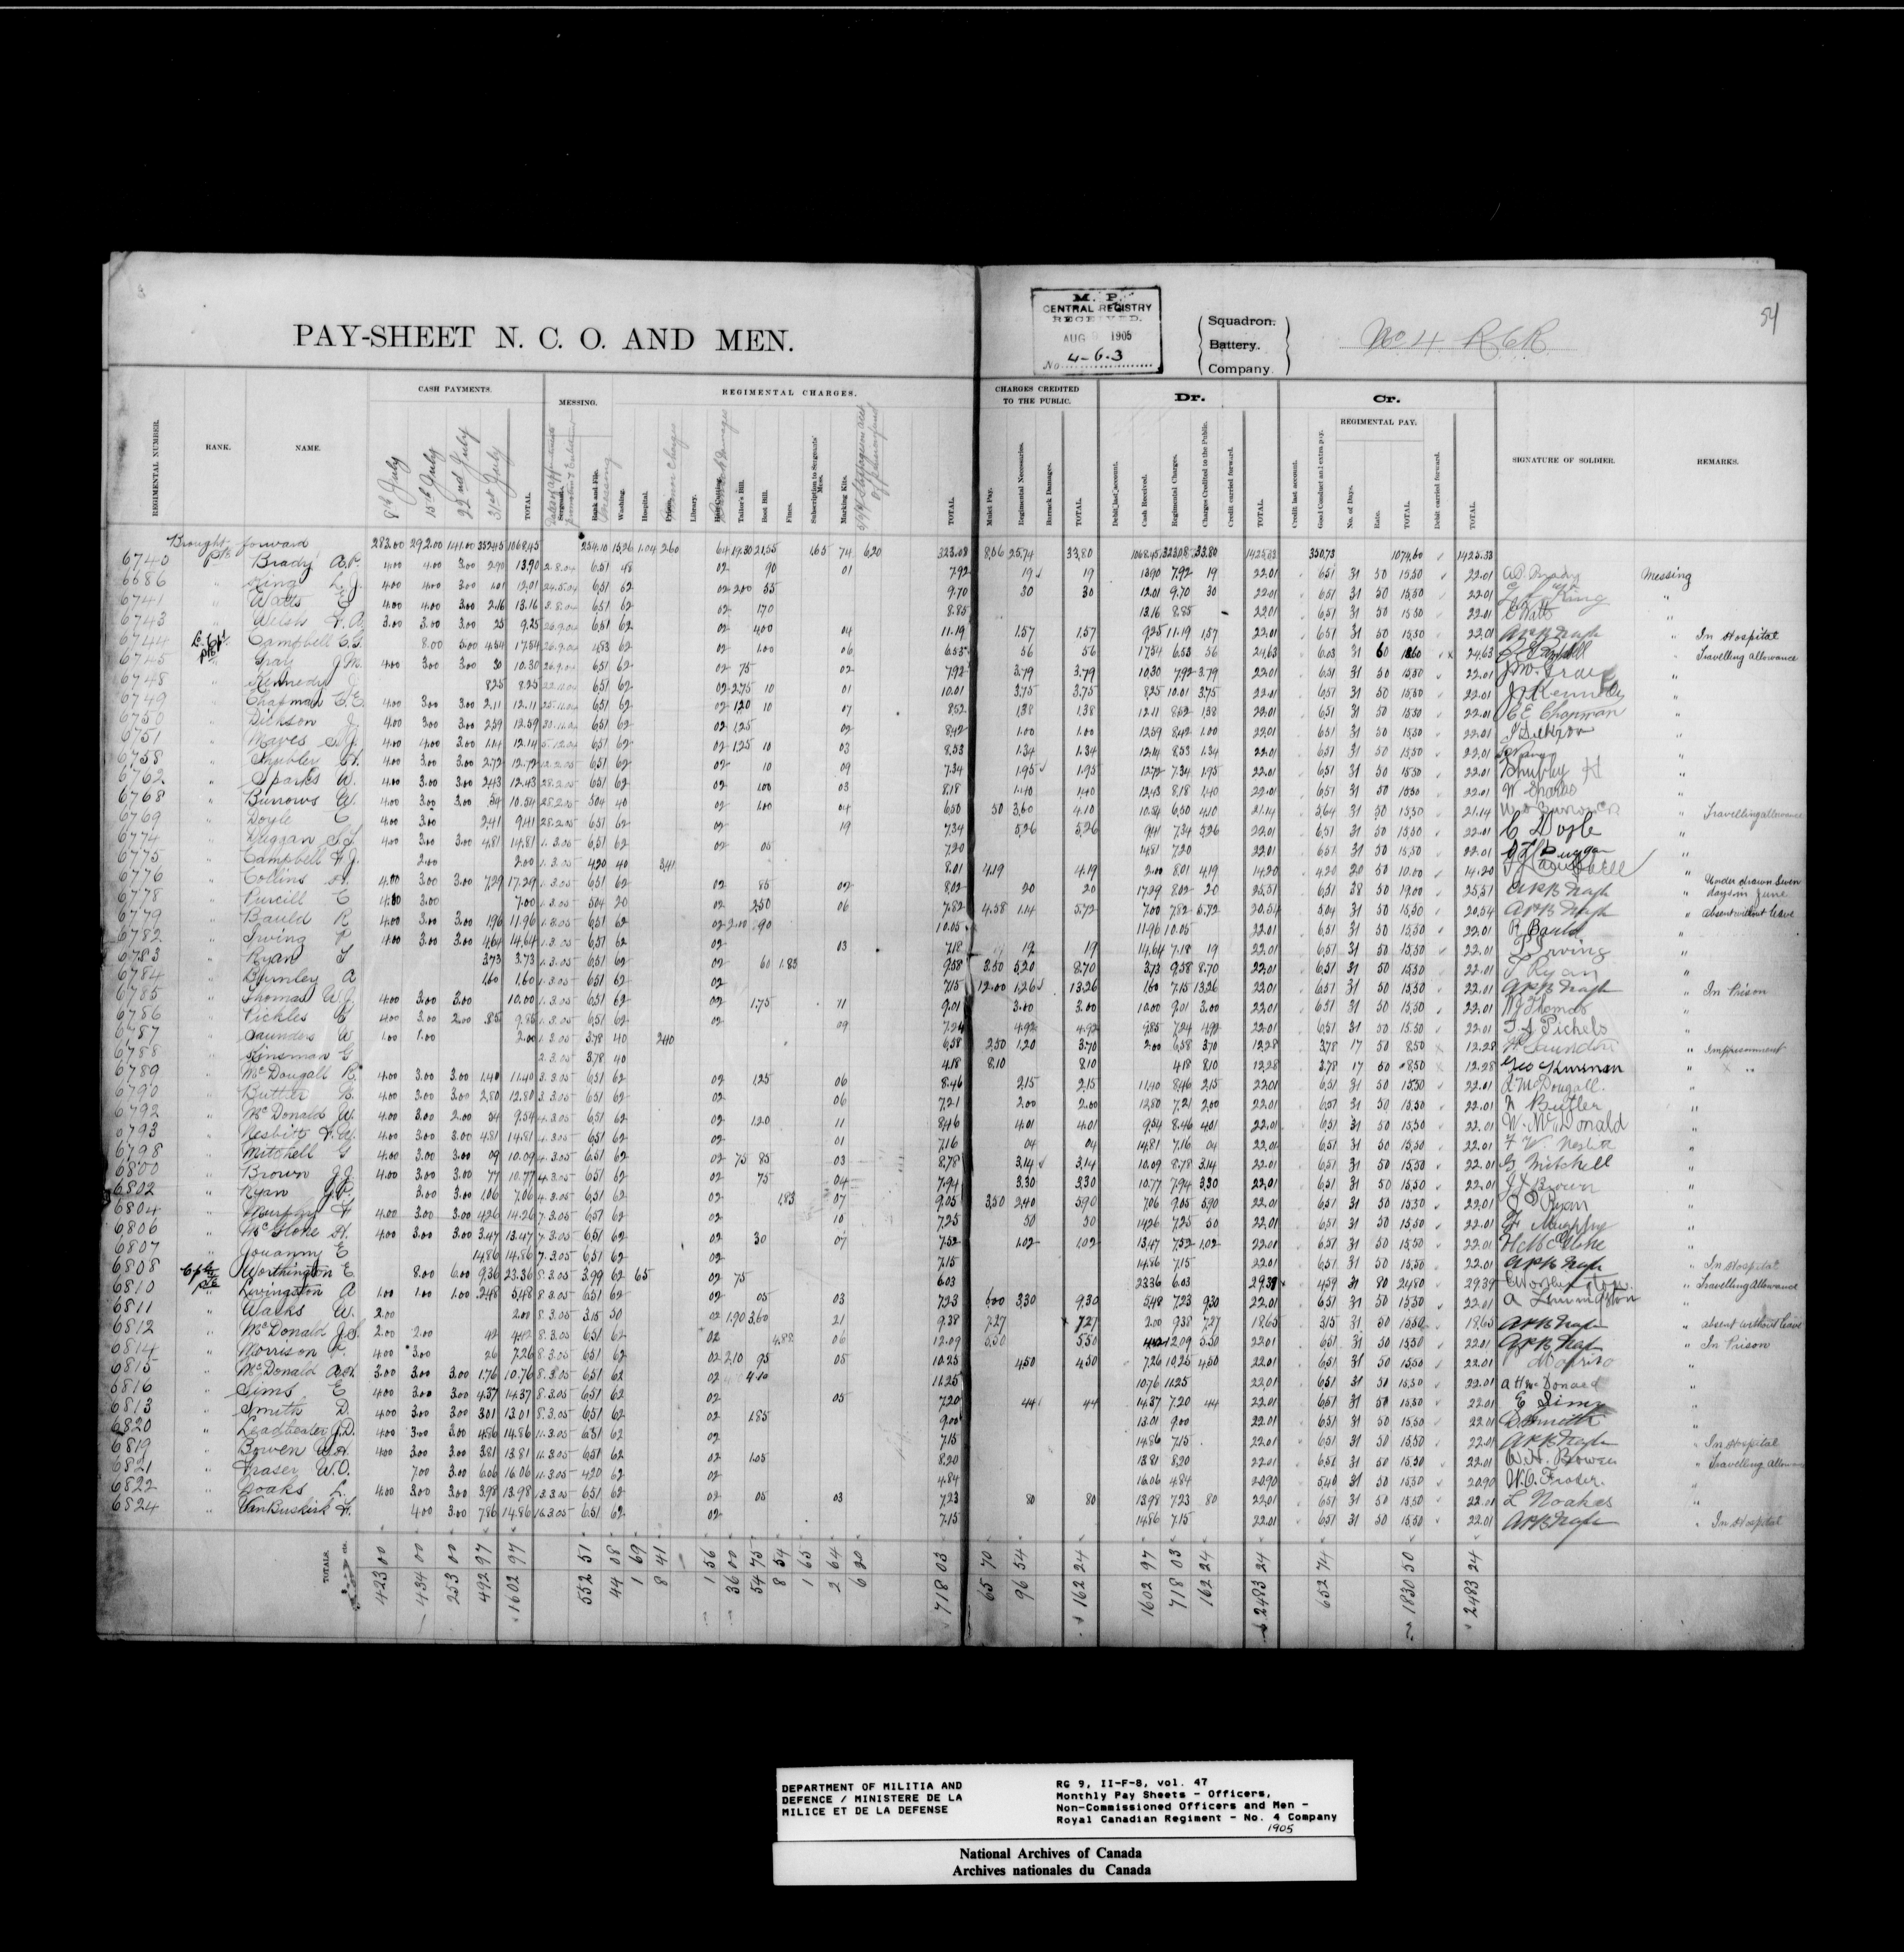 PAY-SHEET N. C. O. AND MEN.
M. P.
CENTRAL REGISTRY
RECEIVED.
AUG 1905
No 4-6.3
Squadron.
Battery.
Company.
No 4 RCR
54
REGIMENTAL NUMBER.
RANK.
NAME.
CASH PAYMENTS.
8th July
15th July
22nd July
31st July
TOTAL.
MESSING.
Sergeants.
Rank and File.
REGIMENTAL CHARGES.
Washing.
Hospital.
Prison.
Library.
Hair Cutting.
Tailor's Bill.
Boot Bill.
Fines.
Subscription to Sergeants' Mess.
Marking Kits.
TOTAL.
CHARGES CREDITED TO THE PUBLIC.
Mulct Pay.
Regimental Necessaries.
Barrack Damages.
TOTAL.
Dr.
Debit last account.
Cash Received.
Regimental Charges.
Charges Credited to the Public.
Credit carried forward.
TOTAL.
Cr.
Credit last account.
Good Conduct and extra pay.
REGIMENTAL PAY.
No. of Days.
Rate.
TOTAL.
Debit carried forward.
TOTAL.
SIGNATURE OF SOLDIER.
REMARKS.
Brought forward 283.00 292.00 141.00 352.45 1068.45 254.10 15.26 1.04 2.60 64 19.30 21.55 1.65 74 6.20 323.08 8.06 25.74 33.80 1068.45 323.08 33.80 1425.33 350.73 1074.60 1425.33
6740 Pte Brady A.P. 4.00 4.00 3.00 2.90 13.90 2.8.04 6.51 48 02 90 01 7.92 19 19 13.90 7.92 19 22.01 6.51 31 50 15.50 22.01 A.P. Brady Messing
6686 " King L.J. 4.00 4.00 3.00 1.01 12.01 24.5.04 6.51 62 02 2.00 55 9.70 30 30 12.01 9.70 30 22.01 6.51 31 50 15.50 22.01 King "
6741 " Watts E 4.00 4.00 3.00 2.16 13.16 6.51 62 02 1.70 8.85 13.16 8.85 22.01 6.51 31 50 15.50 22.01 E Watts "
6743 " Welsh F.A. 3.00 3.00 3.00 25 9.25 26.9.04 6.51 62 02 4.00 04 11.19 1.57 1.57 9.25 11.19 1.57 22.01 6.51 31 50 15.50 22.01 " In Hospital
6744 L. Cpl. Campbell C.G. 8.00 5.00 4.54 17.54 26.9.04 02 1.00 06 6.53 56 56 17.54 6.53 56 24.63 6.03 31 60 18.60 24.63 " Travelling allowance
6745 Pte Gray J.M. 4.00 3.00 3.00 30 10.30 6.51 62 02 75 02 7.92 3.79 3.79 10.30 7.92 3.79 22.01 6.51 31 50 15.50 22.01 "
6748 " Kennedy J 8.25 8.25 6.51 62 02 2.75 10 01 10.01 3.75 3.75 8.25 10.01 3.75 22.01 6.51 31 50 15.50 22.01 J Kennedy "
6749 " Chapman C.E. 4.00 3.00 3.00 2.11 12.11 25.11.04 6.51 62 02 1.20 10 07 8.52 1.38 1.38 12.11 8.52 1.38 22.01 6.51 31 50 15.50 22.01 C E Chapman "
6750 " Dickson J. 4.00 3.00 3.00 2.59 12.59 6.51 62 02 1.25 02 8.42 1.00 1.00 12.59 8.42 1.00 22.01 6.51 31 50 15.50 22.01 "
6751 " Mayes S.J. 4.00 4.00 3.00 1.14 12.14 5.12.04 6.51 62 02 1.25 10 03 8.53 1.34 1.34 12.14 8.53 1.34 22.01 6.51 31 50 15.50 22.01 "
6758 " Shubley H. 4.00 3.00 3.00 2.72 12.72 6.51 62 02 10 09 7.34 1.95 1.95 12.72 7.34 1.95 22.01 6.51 31 50 15.50 22.01 Shubley H "
6762 " Sparks W. 4.00 3.00 3.00 2.43 12.43 28.2.05 6.51 62 02 1.00 03 8.18 1.40 1.40 12.43 8.18 1.40 22.01 6.51 31 50 15.50 22.01 W Sparks "
6768 " Burrows W. 4.00 3.00 3.00 .54 10.54 28.2.05 5.04 40 02 1.00 04 6.50 50 3.60 4.10 10.54 6.50 4.10 21.14 5.64 31 50 15.50 21.14 Travelling allowance
6769 " Doyle C 4.00 3.00 2.41 9.41 28.2.05 6.51 62 02 19 7.34 5.26 5.26 9.41 7.34 5.26 22.01 6.51 31 50 15.50 22.01 C Doyle "
6774 " Duggan S.F. 4.00 3.00 3.00 4.81 14.81 1.3.05 6.51 62 02 05 7.20 14.81 7.20 22.01 6.51 31 50 15.50 22.01 Duggan "
6775 " Campbell F.J. 2.00 2.00 1.3.05 4.20 40 3.41 8.01 4.19 4.19 2.00 8.01 4.19 14.20 4.20 20 50 10.00 14.20 Campbell "
6776 " Collins H. 4.00 3.00 3.00 7.29 17.29 1.3.05 6.51 62 02 85 02 8.02 20 20 17.29 8.02 20 25.51 6.51 38 50 19.00 25.51 " Under drawn Seven days in June
6778 " Purcill E 4.00 3.00 7.00 1.3.05 5.04 20 02 2.50 06 7.82 4.58 1.14 5.72 7.00 7.82 5.72 20.54 5.04 31 50 15.50 20.54 " absent without leave
6779 " Bauld R 4.00 3.00 3.00 1.96 11.96 1.3.05 6.51 62 02 2.00 90 10.05 11.96 10.05 22.01 6.51 31 50 15.50 22.01 R Bauld "
6782 " Irving P 4.00 3.00 3.00 4.64 14.64 1.3.05 6.51 62 02 03 7.18 19 19 14.64 7.18 19 22.01 6.51 31 50 15.50 22.01 Irving "
6783 " Ryan T 3.73 3.73 1.3.05 6.51 62 02 60 1.83 9.58 3.50 5.20 8.70 3.73 9.58 8.70 22.01 6.51 31 50 15.50 22.01 T Ryan "
6784 " Burnley A 1.60 1.60 1.3.05 6.51 62 02 7.15 12.00 1.26 13.26 1.60 7.15 13.26 22.01 6.51 31 50 15.50 22.01 " In Prison
6785 " Thomas W.J. 4.00 3.00 3.00 10.00 1.3.05 6.51 62 02 1.75 11 9.01 3.00 3.00 10.00 9.01 3.00 22.01 6.51 31 50 15.50 22.01 W J Thomas "
6786 " Pickles 4.00 3.00 2.00 .85 9.85 1.3.05 6.51 62 02 09 7.24 4.92 4.92 9.85 7.24 4.92 22.01 6.51 31 50 15.50 22.01 Pichels "
6787 " Saunders W 1.00 1.00 2.00 1.3.05 3.78 40 2.40 6.58 2.50 1.20 3.70 2.00 6.58 3.70 12.28 3.78 17 50 8.50 12.28 W Saunders " Imprisonment
6788 " Kinsman G 2.3.05 3.78 40 4.18 8.10 8.10 4.18 8.10 12.28 3.78 17 50 8.50 12.28 Geo Kinsman " "
6789 " McDougall R. 4.00 3.00 3.00 1.40 11.40 3.3.05 6.51 62 02 1.25 06 8.46 2.15 2.15 11.40 8.46 2.15 22.01 6.51 31 50 15.50 22.01 McDougall. "
6790 " Buttler 4.00 3.00 3.00 2.80 12.80 3.3.05 6.51 62 02 06 7.21 2.00 2.00 12.80 7.21 2.00 22.01 6.51 31 50 15.50 22.01 Butler "
6792 " McDonald W. 4.00 3.00 2.00 54 9.54 4.3.05 6.51 62 02 1.20 11 8.46 4.01 4.01 9.54 8.46 4.01 22.01 6.51 31 50 15.50 22.01 W. McDonald "
6793 " Nesbitt F.W. 4.00 3.00 3.00 4.81 14.81 4.3.05 6.51 62 02 01 7.16 04 04 14.81 7.16 04 22.01 6.51 31 50 15.50 22.01 "
6798 " Mitchell G 4.00 3.00 3.00 09 10.09 4.3.05 6.51 62 02 75 85 03 8.78 3.14 3.14 10.09 8.78 3.14 22.01 6.51 31 50 15.50 22.01 G Mitchell "
6800 " Brown J.J. 4.00 3.00 3.00 77 10.77 4.3.05 6.51 62 02 75 04 7.94 3.30 3.30 10.77 7.94 3.30 22.01 6.51 31 50 15.50 22.01 J J Brown "
6802 " Ryan J.P. 3.00 3.00 1.06 7.06 4.3.05 6.51 62 02 1.83 07 9.05 3.50 2.40 5.90 7.06 9.05 5.90 22.01 6.51 31 50 15.50 22.01 J P Ryan "
6804 " Murphy F 4.00 3.00 3.00 4.26 14.26 7.3.05 6.51 62 02 10 7.25 50 50 14.26 7.25 50 22.01 6.51 31 50 15.50 22.01 F Murphy "
6806 " McGlone H. 4.00 3.00 3.00 3.47 13.47 7.3.05 6.51 62 02 30 07 7.52 1.02 1.02 13.47 7.52 1.02 22.01 6.51 31 50 15.50 22.01 H McGlone "
6807 " Jouanny E 14.86 14.86 7.3.05 6.51 62 02 7.15 14.86 7.15 22.01 6.51 31 50 15.50 22.01 " In Hospital
6808 Cpl Worthington E 8.00 6.00 9.36 23.36 8.3.05 3.99 62 65 02 75 6.03 23.36 6.03 29.39 4.59 31 80 24.80 29.39 " Travelling Allowance
6810 Pte Livingston A 1.00 1.00 1.00 2.48 5.48 8.3.05 6.51 62 02 05 03 7.23 6.00 3.30 9.30 5.48 7.23 9.30 22.01 6.51 31 50 15.50 22.01 A Livingston "
6811 " Warks W. 2.00 2.00 8.3.05 3.15 50 02 1.90 3.60 21 9.38 7.27 7.27 2.00 9.38 7.27 18.65 3.15 31 50 15.50 18.65 " absent without leave
6812 " McDonald J.S. 2.00 2.00 42 4.42 8.3.05 6.51 62 02 4.88 06 12.09 5.50 5.50 4.42 12.09 5.50 22.01 6.51 31 50 15.50 22.01 " In Prison
6814 " Morrison 4.00 3.00 26 7.26 8.3.05 6.51 62 02 2.10 95 05 10.25 4.50 4.50 7.26 10.25 4.50 22.01 6.51 31 50 15.50 22.01 "
6815 " McDonald A.H. 3.00 3.00 3.00 1.76 10.76 8.3.05 6.51 62 02 4.10 11.25 10.76 11.25 22.01 6.51 31 50 15.50 22.01 A H McDonald "
6816 " Sims E 4.00 3.00 3.00 4.37 14.37 8.3.05 6.51 62 02 05 7.20 44 44 14.37 7.20 44 22.01 6.51 31 50 15.50 22.01 E Sims "
6813 " Smith D. 4.00 3.00 3.00 3.01 13.01 8.3.05 6.51 62 02 1.85 9.00 13.01 9.00 22.01 6.51 31 50 15.50 22.01 D Smith "
6820 " Leadbeater J.D. 4.00 3.00 3.00 4.86 14.86 11.3.05 6.51 62 02 7.15 14.86 7.15 22.01 6.51 31 50 15.50 22.01 " In Hospital
6819 " Bowen W.H. 4.00 3.00 3.00 3.81 13.81 11.3.05 6.51 62 02 1.05 8.20 13.81 8.20 22.01 6.51 31 50 15.50 22.01 W.H. Bowen " Travelling Allowance
6821 " Fraser W.O. 7.00 3.00 6.06 16.06 11.3.05 4.20 62 02 4.84 16.06 4.84 20.90 5.40 31 50 15.50 20.90 W.O. Fraser. "
6822 " Noaks L. 4.00 3.00 3.00 3.98 13.98 13.3.05 6.51 62 02 05 03 7.23 80 80 13.98 7.23 80 22.01 6.51 31 50 15.50 22.01 L Noakes "
6824 " VanBuskirk F. 4.00 3.00 7.86 14.86 16.3.05 6.51 62 02 7.15 14.86 7.15 22.01 6.51 31 50 15.50 22.01 " In Hospital
TOTALS. 423 00 434 00 253 00 492 97 1602 97 552 51 44 08 1 69 8 41 1 56 36 00 54 75 8 54 1 65 2 64 6 20 718 03 65 70 96 54 162 24 1602 97 718 03 162 24 2483 24 652 74 1830 50 2483 24
DEPARTMENT OF MILITIA AND
DEFENCE / MINISTERE DE LA
MILICE ET DE LA DEFENSE
RG 9, II-F-8, vol. 47
Monthly Pay Sheets - Officers,
Non-Commissioned Officers and Men -
Royal Canadian Regiment - No. 4 Company
1905
National Archives of Canada
Archives nationales du Canada